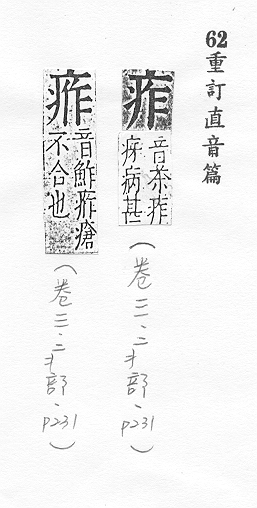 62重訂直音篇
痄
音茶痄
疨病甚
（卷三、疒部、p231）
痄
音鮓痄瘡
不合也
（卷三、疒部、p231）